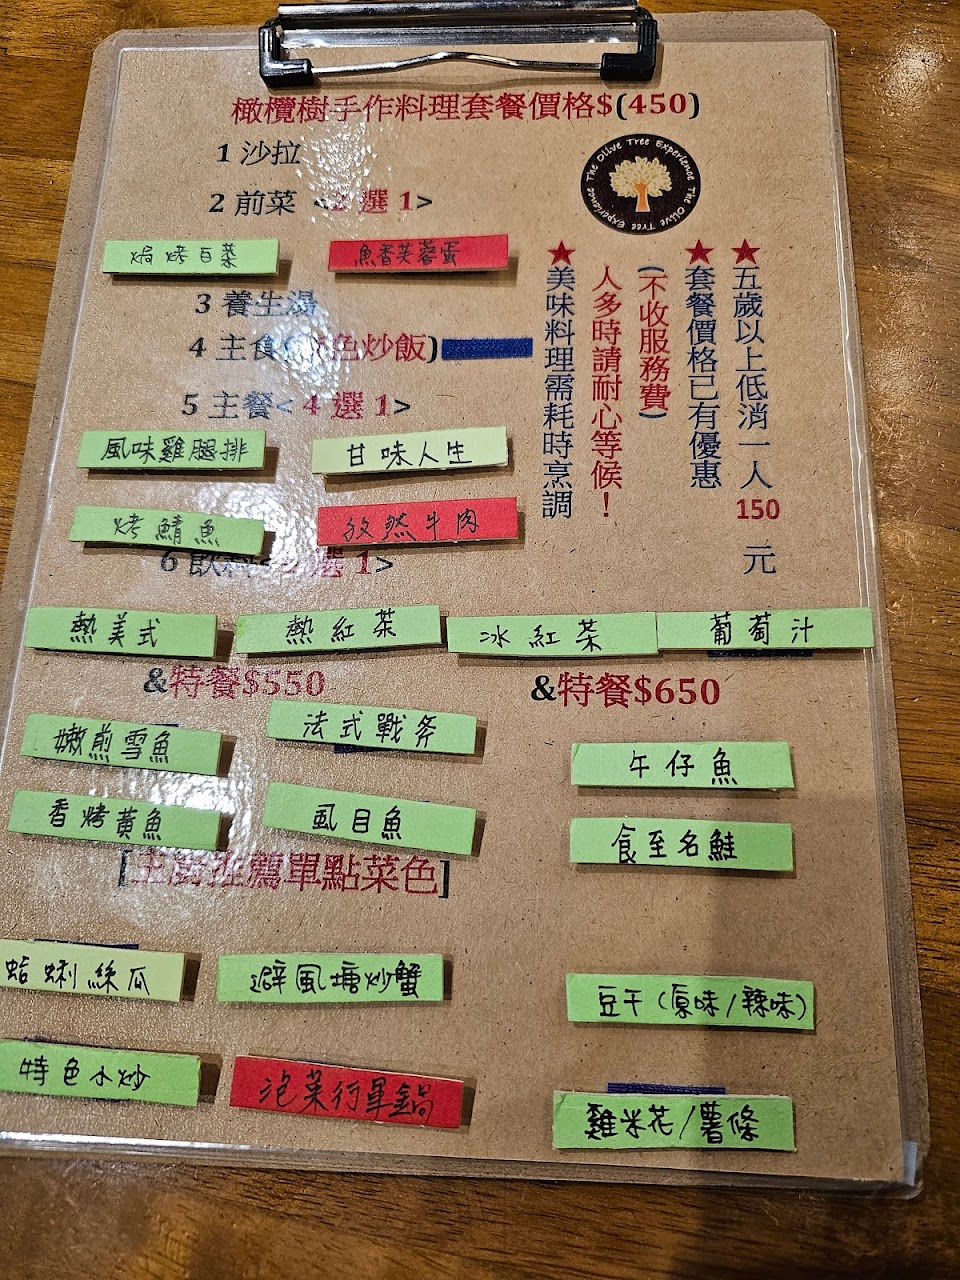 橄欖樹手作料理套餐價格$(450)
The Olive Tree Experience The Olive Tree Experience
1 沙拉
2 前菜 <2 選 1>
焗烤白菜
魚香芙蓉蛋
3 養生湯
4 主食 色炒飯)
5 主餐< 4 選 1>
風味雞腿排
甘味人生
烤鯖魚
孜然牛肉
6 飲料< 選 1>
熱美式
熱紅茶
冰紅茶
葡萄汁
★五歲以上低消一人150元
★套餐價格已有優惠
(不收服務費)
人多時請耐心等候！
★美味料理需耗時烹調
&特餐$550
嫩煎雪魚
法式戰斧
香烤黃魚
虱目魚
&特餐$650
午仔魚
食至名鮭
[主廚推薦單點菜色]
蛤蜊絲瓜
避風塘炒蟹
豆干(原味/辣味)
特色小炒
泡菜行軍鍋
雞米花/薯條